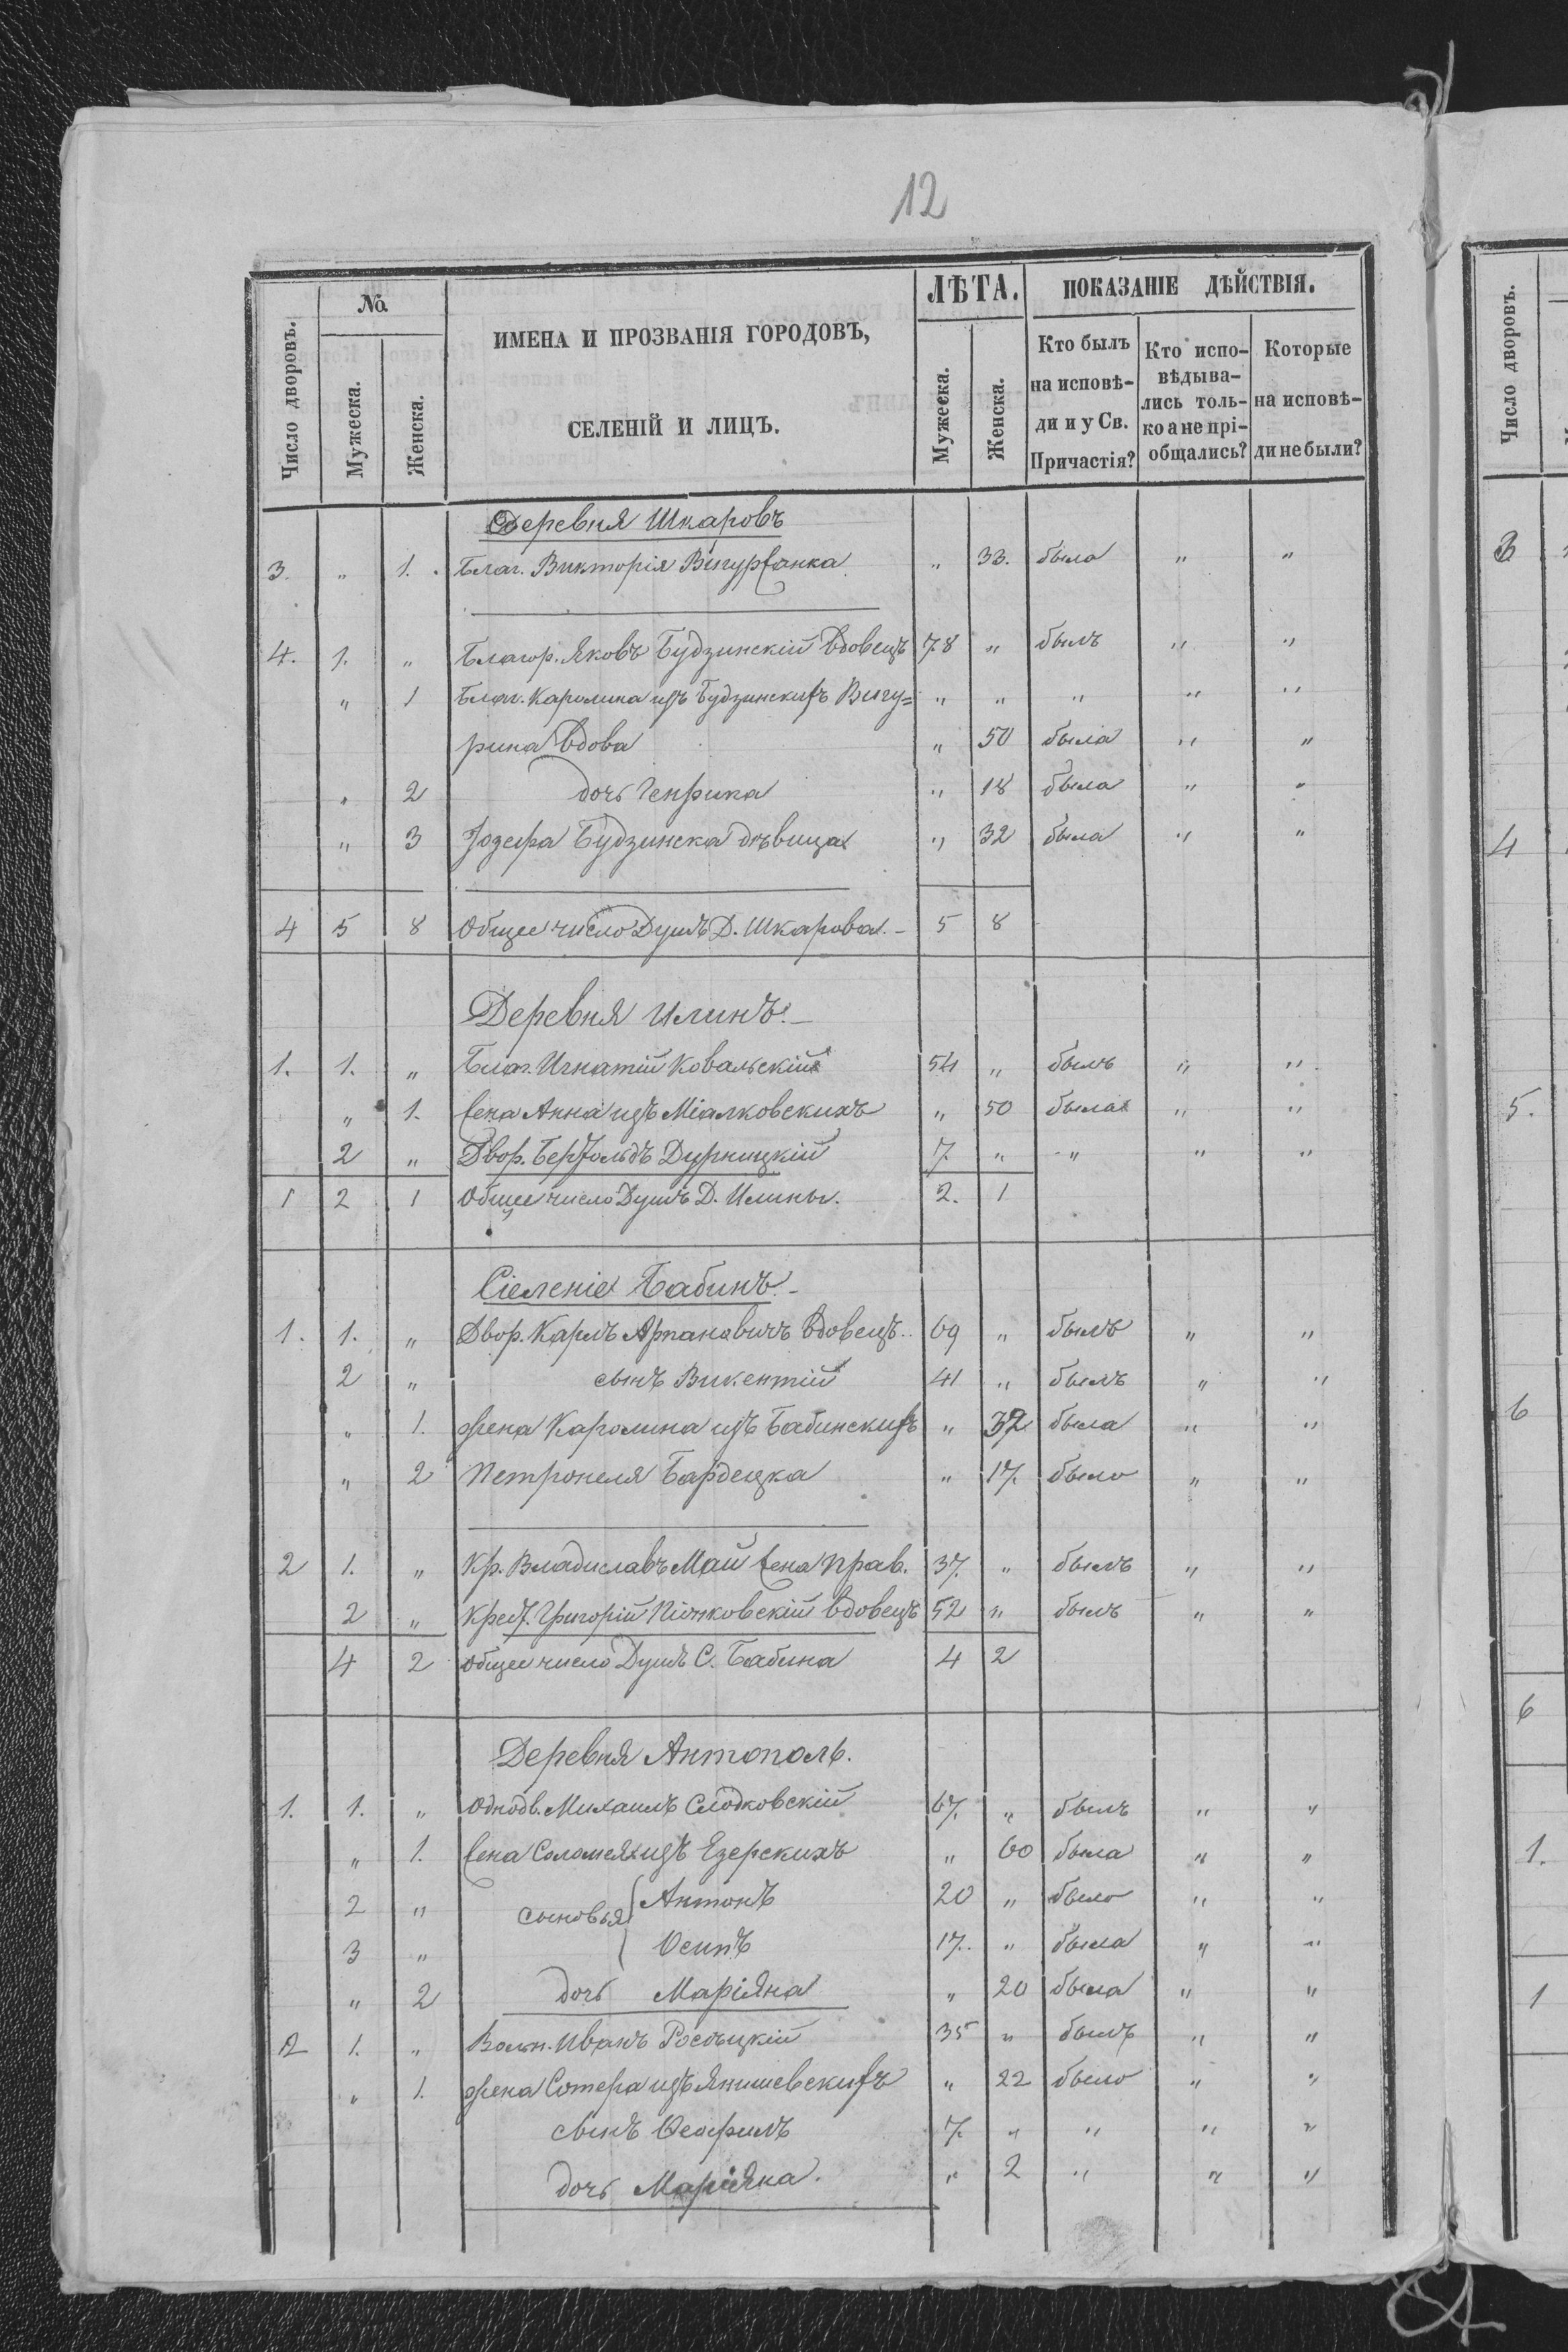 12
Число дворовъ. № Мужеска. Женска. ИМЕНА И ПРОЗВАНІЯ ГОРОДОВЪ, СЕЛЕНІЙ И ЛИЦЪ. ЛѢТА. Мужеска. Женска. ПОКАЗАНІЕ ДѢЙСТВІЯ. Кто былъ на исповѣ-ди и у Св. Причастія? Кто испо-вѣдыва-лись толь-ко а не прі-общались? Которые на исповѣ-ди не были?
Деревня Шкаровъ
3. " 1. Благ. Викторія Вигуржанка " 33. была " "
4. 1. " Благор. Яковъ Будзинскій вдовецъ 78 " былъ " "
" 1 Благ. Каролина изъ Будзинскихъ Вигу= " " " " "
рина вдова " 50 была " "
" 2 дочь Генрика " 18 была " "
" 3 Юзефа Будзинска дѣвица " 32 была " "
4 5 8 Общее число Душъ Д. Шкарова. 5 8
Деревня Илинъ.
1. 1. " Благ. Игнатій Ковальскій 54 " былъ " "
" 1. жена Анна изъ Міалковскихъ " 50 была " "
2 " Двор. Бертольдъ Дурницкій 7. " " " "
1 2 1 Общее число Душъ Д. Илины. 2. 1
Сіеленіе Бабинъ.
1. 1. " Двор. Карлъ Арпановичъ вдовецъ 69 " былъ " "
2 " сынъ Викентій 41 " былъ " "
" 1. жена Каролина изъ Бабинскихъ " 32 была " "
" 2 Петронеля Бардецка " 17. было " "
2 1. " Кр. Владиславъ Май жена прав. 37. " былъ " "
2 " Крест. Григорій Піонковскій вдовецъ 52 " былъ " "
4 2 Общее число Душъ С. Бабина 4 2
Деревня Антополь.
1. 1. " Однодв. Михаилъ Слодковскій 67. " былъ " "
" 1. жена Саломея изъ Езерскихъ " 60 была " "
2 " сыновья Антонъ 20 " было " "
3 " Осипъ 17. " была " "
" 2 дочь Маріяна " 20 была " "
2 1. " Вольн. Иванъ 35 " былъ " "
" 1. жена Сотера изъ Янишевскихъ " 22 было " "
сынъ Ѳеофилъ 7. " " " "
дочь Маріяна. " 2 " " "
Число дворовъ.
3
4
5.
6
6
1.
1